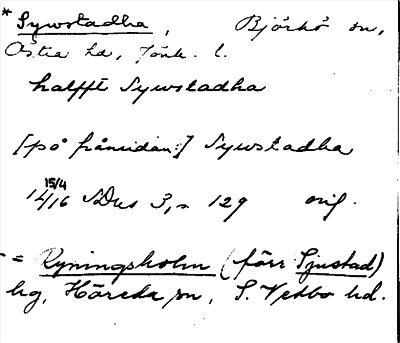 * Sywstadha, Björkö sn,
Östra hd, Jönk. l.
halfft Sywstadha
[på frånsidan:] Sywstadha
15/4
14/16 SDns 3, s 129 orig.
= Ryningsholm (förr Sjustad)
hg, Häreda sn, S. Vedbo hd.